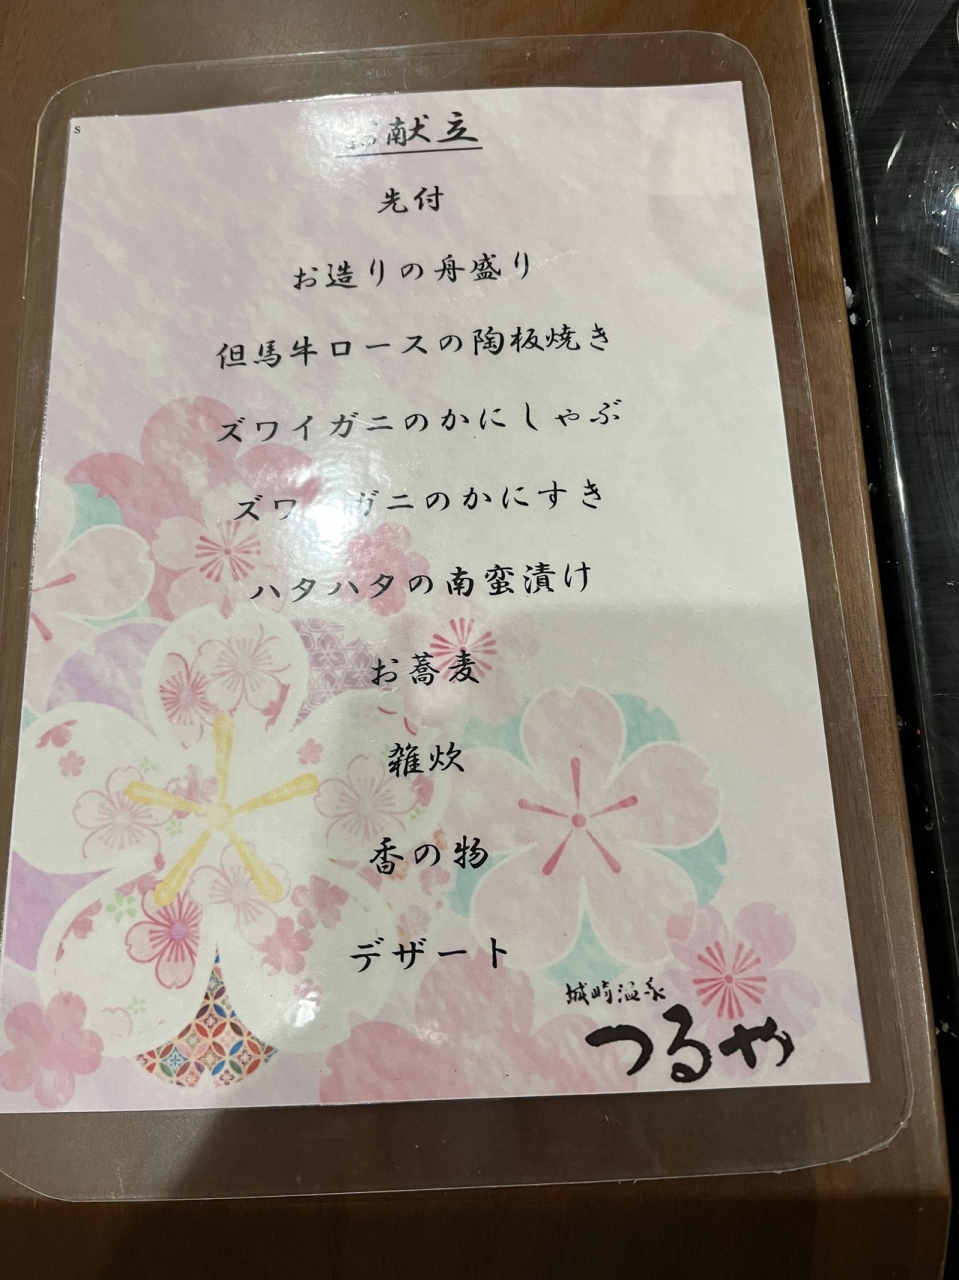 s
お献立
先付
お造りの舟盛り
但馬牛ロースの陶板焼き
ズワイガニのかにしゃぶ
ズワイガニのかにすき
ハタハタの南蛮漬け
お蕎麦
雑炊
香の物
デザート
城崎温泉
つるや